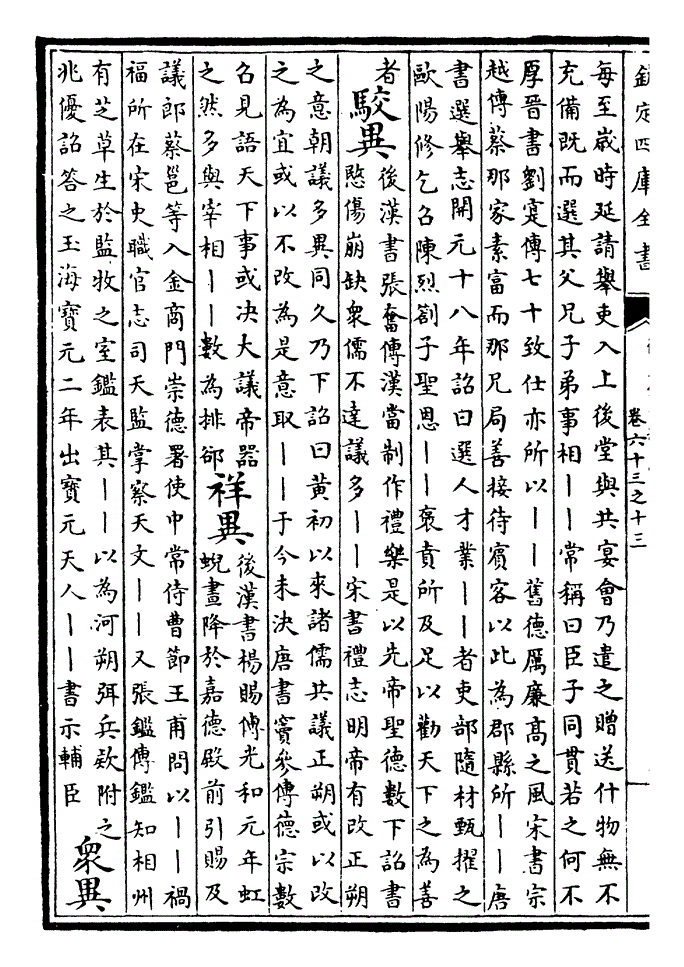 欽定四庫全書
卷六十三之十三
每至歲時延請舉吏入上後堂與共宴會乃遣之贈送什物無不
充備既而選其父兄子弟事相丨丨常稱曰臣子同貫若之何不
厚晉書劉寔傳七十致仕亦所以丨丨舊德厲廉高之風宋書宗
越傳蔡那家素富而那兄局善接待賓客以此為郡縣所丨丨唐
書選舉志開元十八年詔曰選人才業丨丨者吏部隨材甄擢之
歐陽修乞召陳烈劄子聖恩丨丨褒賁所及足以勸天下之為善
者
駮異
後漢書張奮傳漢當制作禮樂是以先帝聖德數下詔書
愍傷崩缺衆儒不達議多丨丨宋書禮志明帝有改正朔
之意朝議多異同久乃下詔曰黃初以來諸儒共議正朔或以改
之為宜或以不改為是意取丨丨于今未決唐書竇參傳德宗數
召見語天下事或決大議帝器
之然多與宰相丨丨數為排卻
祥異
後漢書楊賜傳光和元年虹
蜺晝降於嘉德殿前引賜及
議郎蔡邕等入金商門崇德署使中常侍曹節王甫問以丨丨禍
福所在宋史職官志司天監掌察天文丨丨又張鑑傳鑑知相州
有芝草生於監牧之室鑑表其丨丨以為河朔弭兵款附之
兆優詔答之玉海寶元二年出寶元天人丨丨書示輔臣
衆異